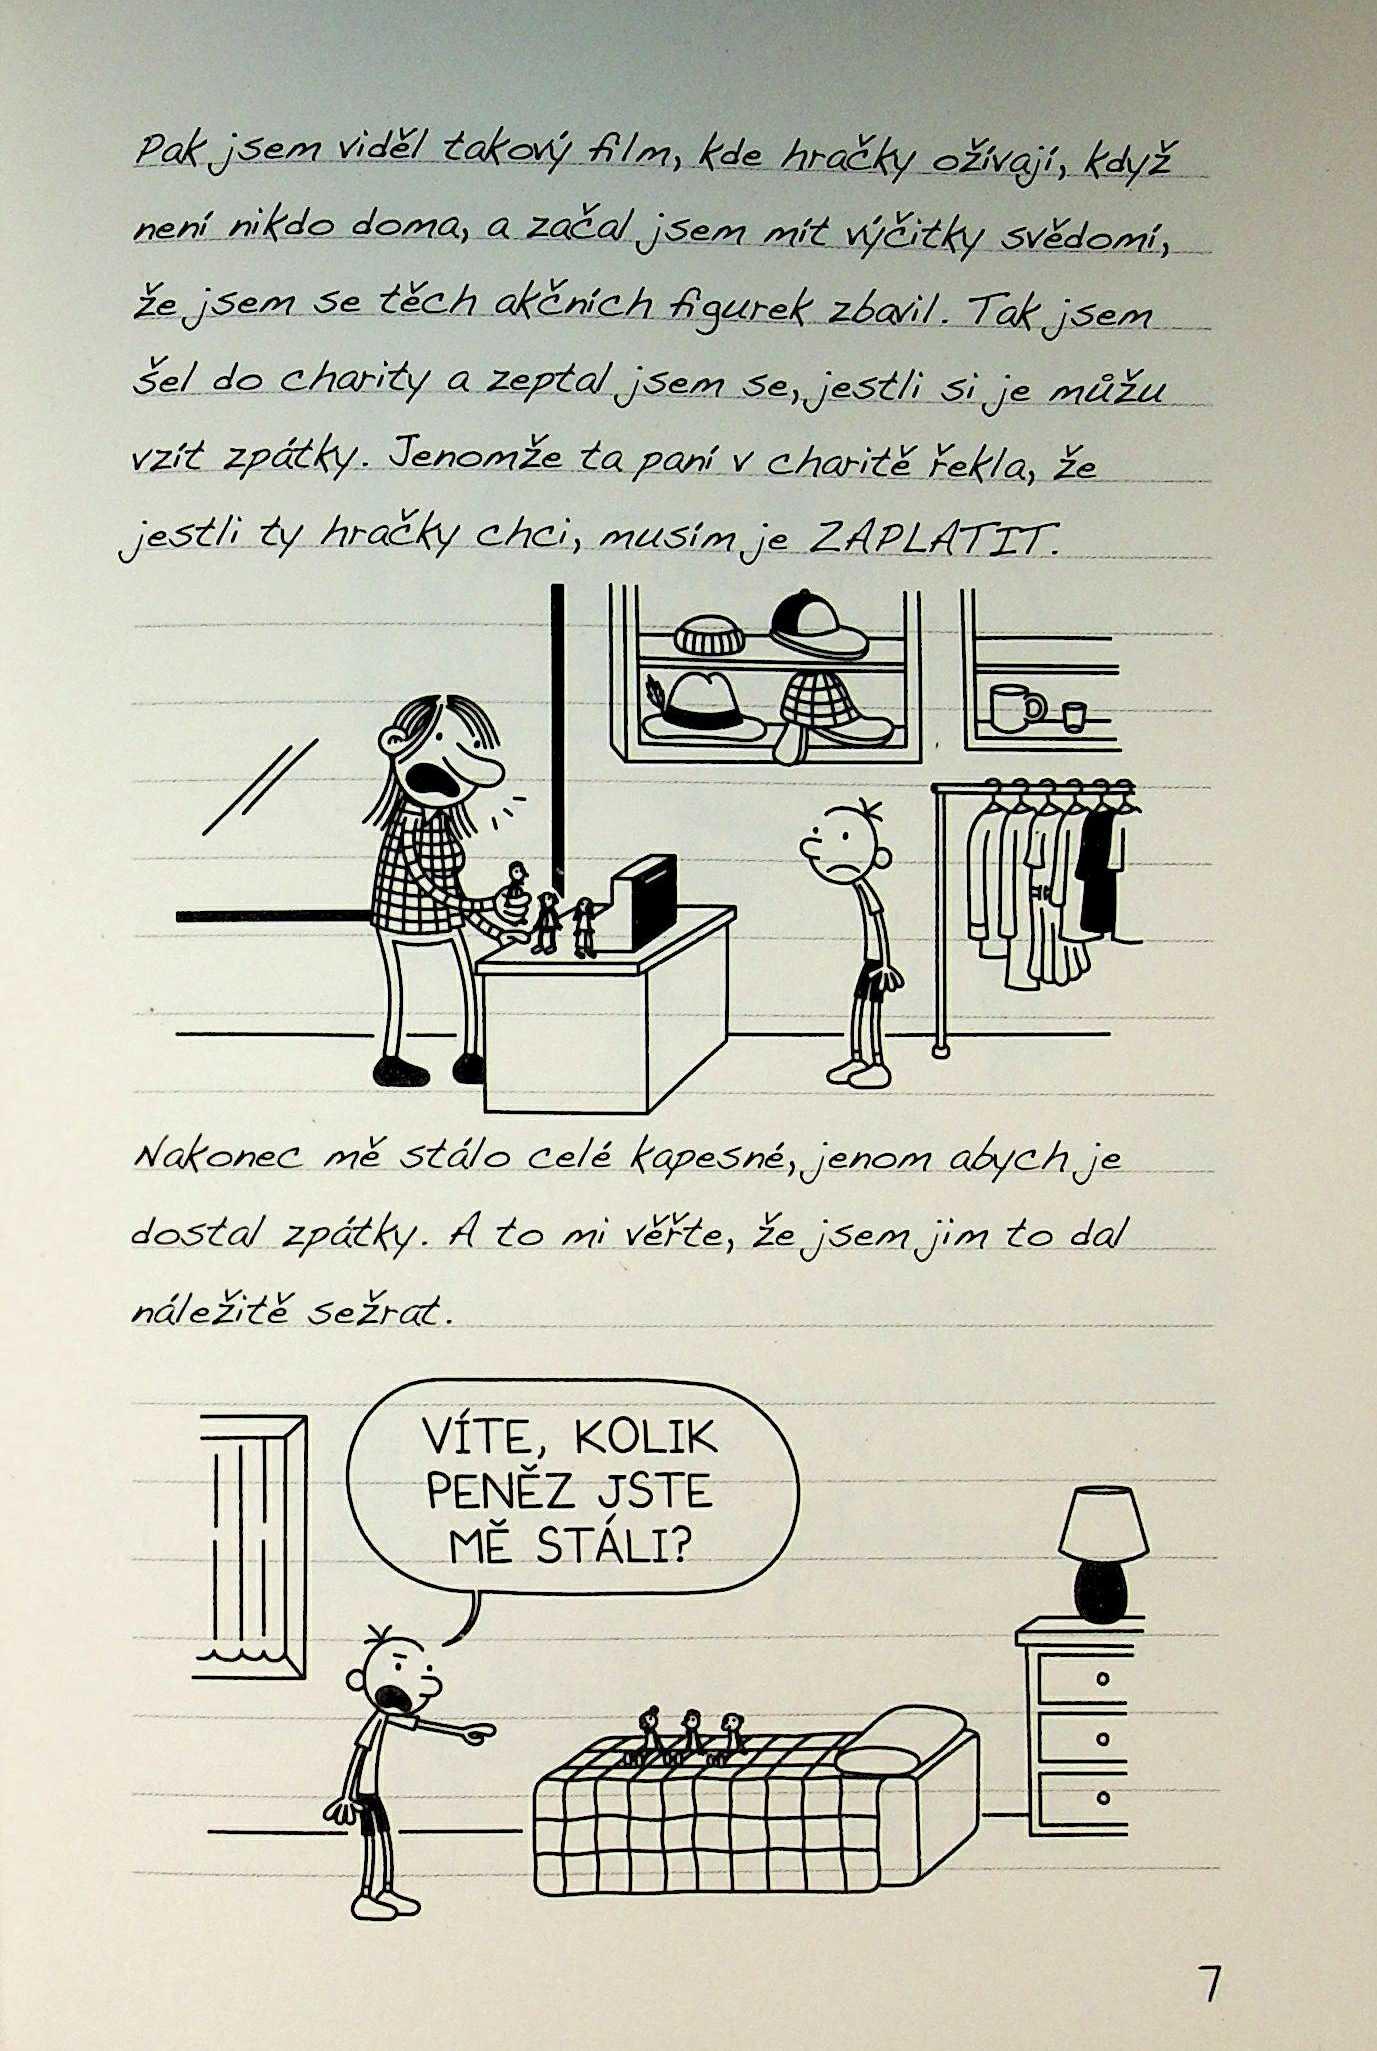 Pak jsem viděl takový film, kde hračky ožívají, když
není nikdo doma, a začal jsem mít výčitky svědomí,
že jsem se těch akčních figurek zbavil. Tak jsem
šel do charity a zeptal jsem se, jestli si je můžu
vzít zpátky. Jenomže ta paní v charitě řekla, že
jestli ty hračky chci, musím je ZAPLATIT.
Nakonec mě stálo celé kapesné, jenom abych je
dostal zpátky. A to mi věřte, že jsem jim to dal
náležitě sežrat.
VÍTE, KOLIK
PENĚZ JSTE
MĚ STÁLI?
7